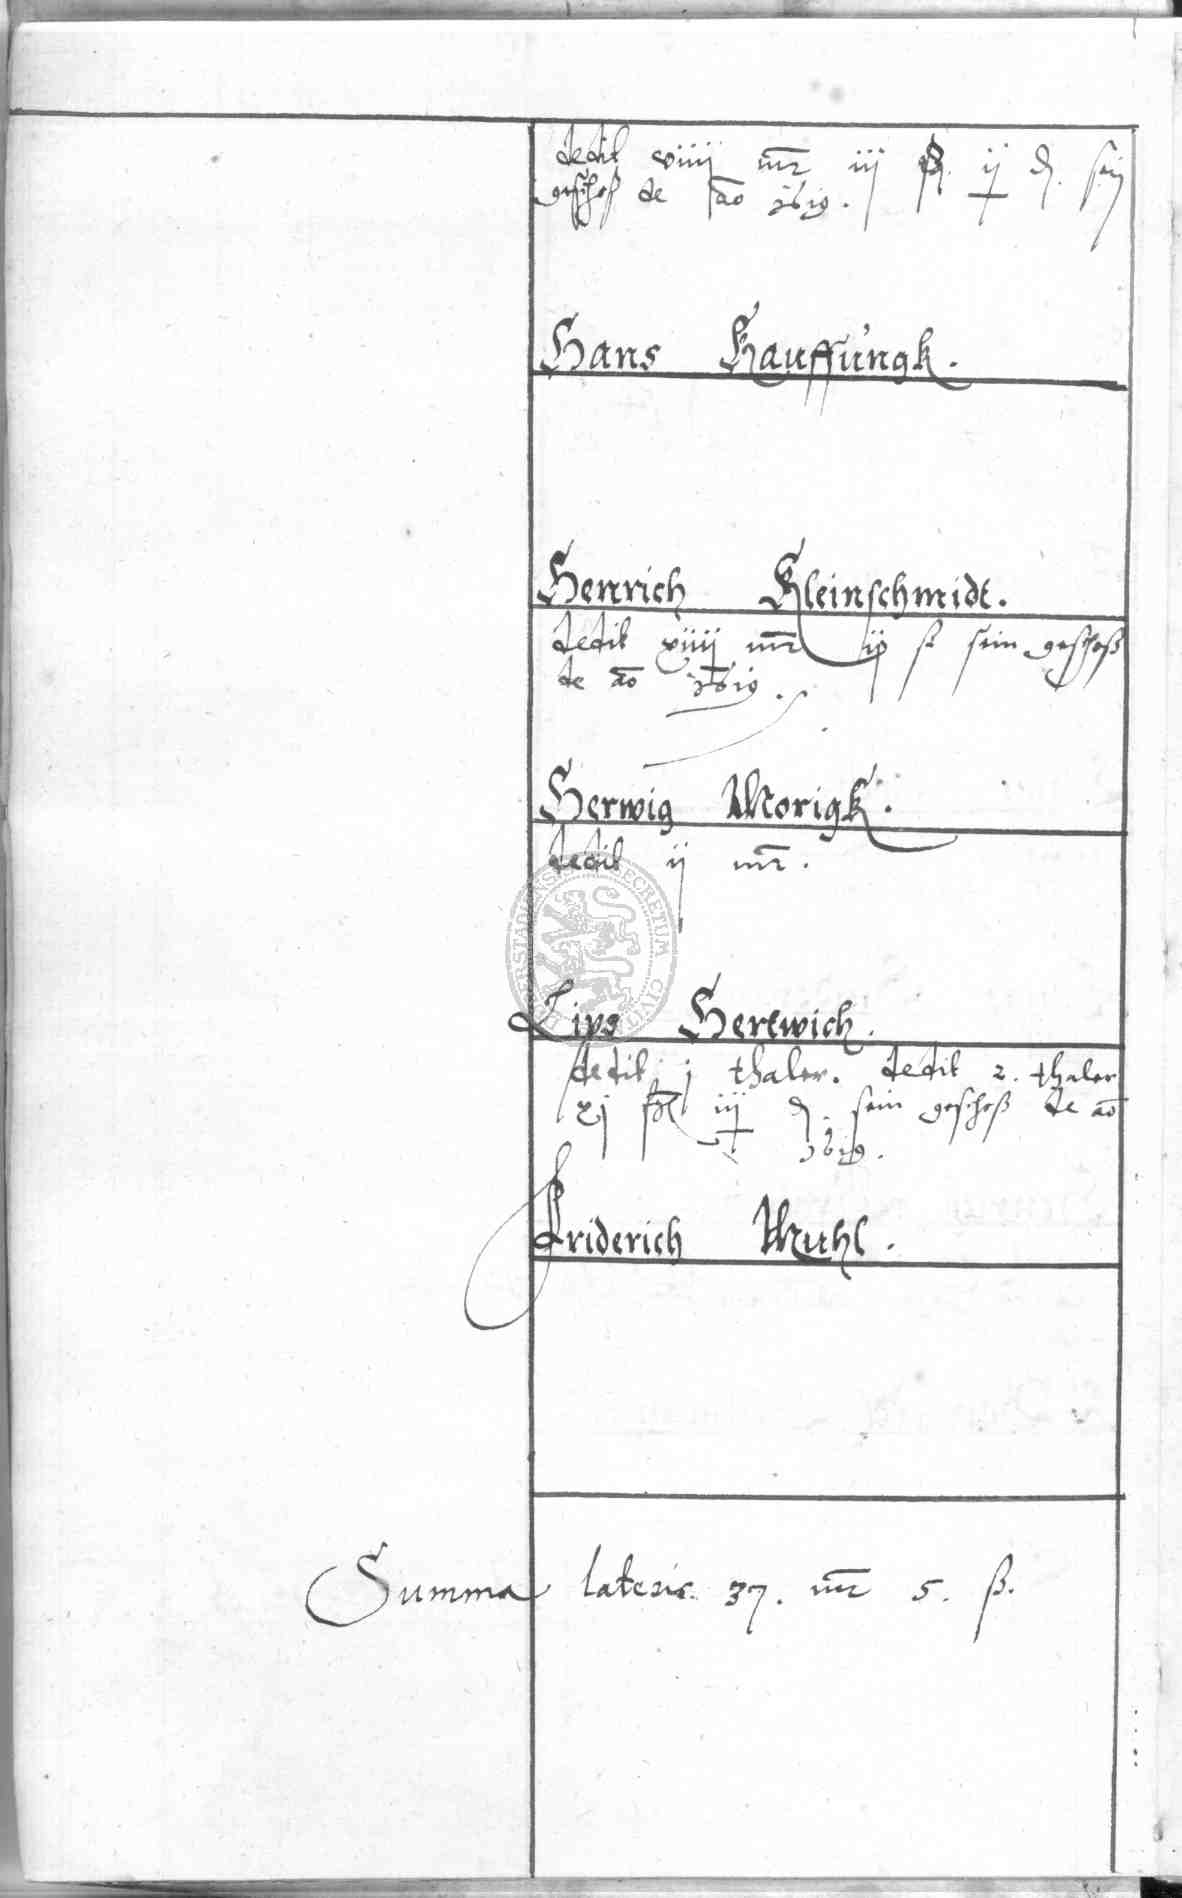 dedit viiij mr iij ß ij ₰. sein
geschoß de ao 1619.
Hans Kauffungk.
Henrich Kleinschmidt.
dedit xiiij mr ij ß sein geschoß
de ao 1619.
Herwig Morigk.
dedit ij mr.
Lips Hertwich.
dedit j thaler. dedit 2. thaler
xj ß iij ₰. sein geschoß de ao
1619.
Friderich Muhl.
Summa lateris. 37. mr 5. ß.
SECRETUM CIVIT